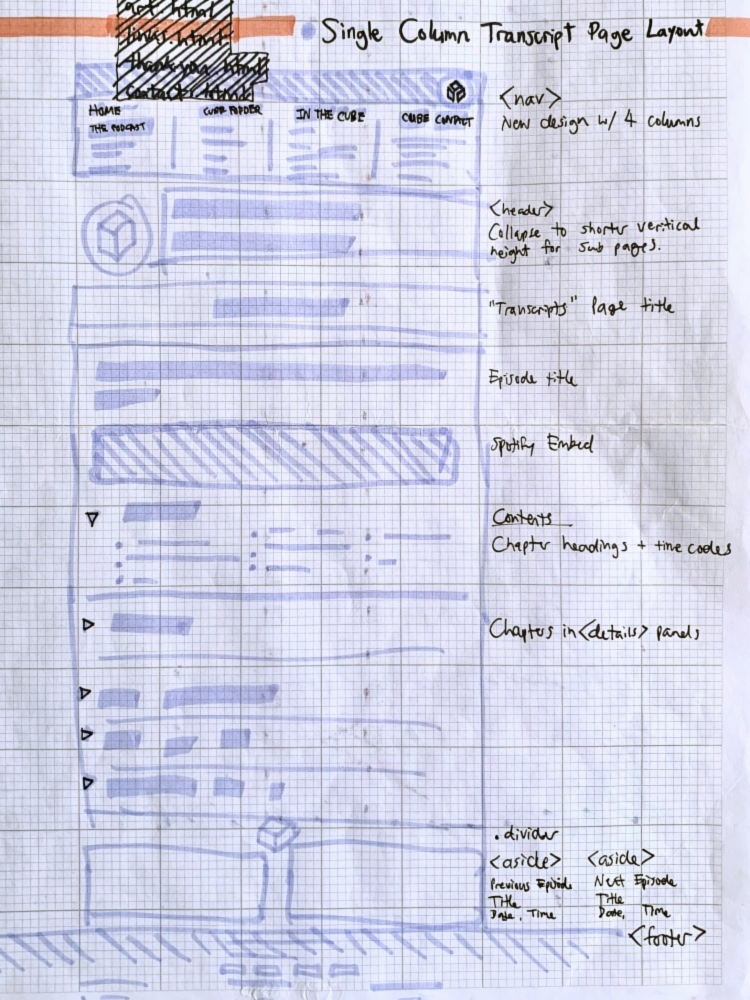 art.html
links.html
thankyou.html
contact.html
Single Column Transcript Page Layout
HOME
THE PODCAST
CUBE FODDER
IN THE CUBE
CUBE CONTACT
<nav>
New design w/ 4 columns
<header>
Collapse to shorter vertical
height for sub pages.
"Transcripts" Page title
Episode title
Spotify Embed
Contents
Chapter headings + time codes
Chapters in <details> panels
.divider
<aside> <aside>
Previous Episode Next Episode
Title Title
Date, Time Date, Time
<footer>